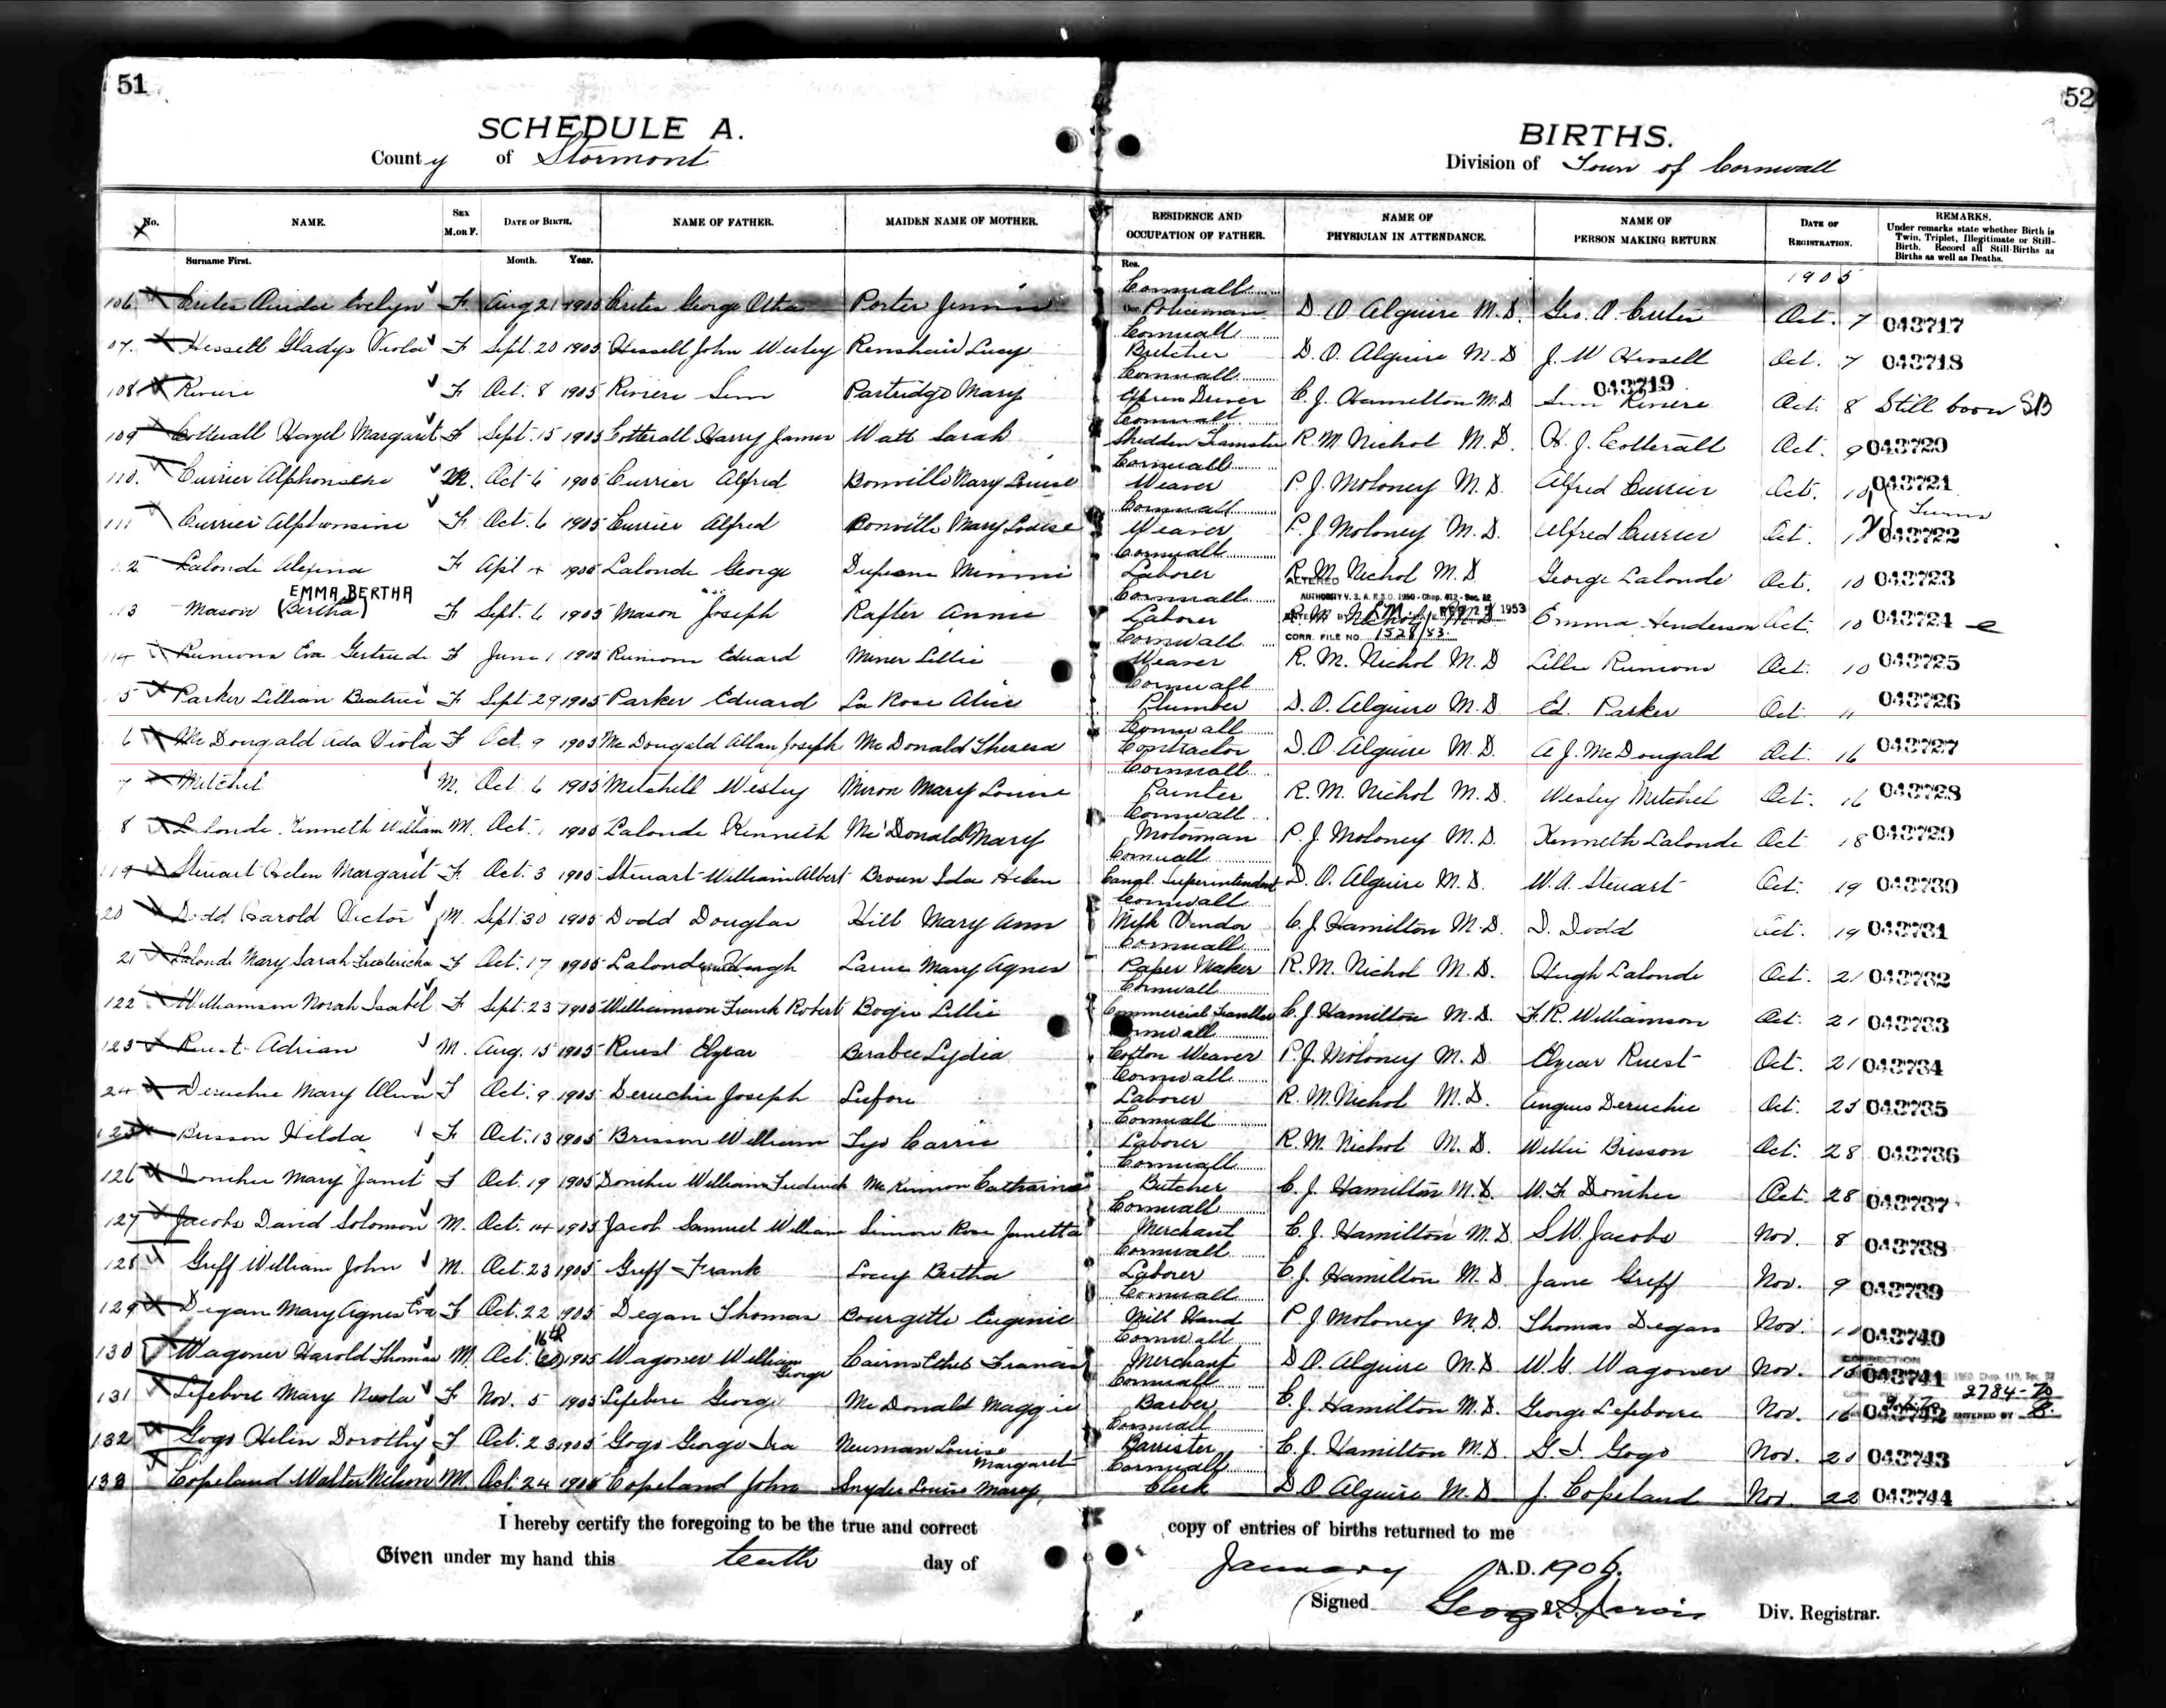 51
52
SCHEDULE A.
BIRTHS.
County of Stormont
Division of Town of Cornwall
No. NAME. SEX M. OR F. DATE OF BIRTH. NAME OF FATHER. MAIDEN NAME OF MOTHER. RESIDENCE AND OCCUPATION OF FATHER. NAME OF PHYSICIAN IN ATTENDANCE. NAME OF PERSON MAKING RETURN. DATE OF REGISTRATION. REMARKS. Under remarks state whether Birth is Twin, Triplet, Illegitimate or Still-Birth. Record all Still-Births as Births as well as Deaths.
Surname First. Month. Year. Res.
1905
106 Evelyn F Aug 21 1905 George Porter Jennie Cornwall Policeman D. O Alguire M.D. Geo. O. Oct. 7 043717
07 Hessell Gladys Viola F Sept. 20 1905 Hessell John Wesley Renshaw Lucy Cornwall Butcher D. O. Alguire M.D J. W Hessell Oct. 7 043718
108 Riviere F Oct. 8 1905 Riviere Partridge Mary Cornwall Driver C. J. Hamilton M.D 043719 Riviere Oct. 8 Still born SB
109 Cotterall Hazel Margaret F Sept. 15 1905 Cotterall Harry James Watt Sarah Cornwall R. M Nichol M.D. H. J. Cotterall Oct. 9 043720
110. Currier M. Oct 6 1905 Currier Alfred Bonville Mary Louise Cornwall Weaver P. J. Moloney M.D. Alfred Currier Oct. 10 043721
111 Currier Alphonsine F. Oct. 6 1905 Currier Alfred Bonville Mary Louise Cornwall Weaver P. J Moloney M.D. Alfred Currier Oct. 043722 Twins
2 Lalonde F Apl 1905 Lalonde George Minnie Cornwall Laborer R. M. Nichol M.D. George Lalonde Oct. 10 043723
EMMA BERTHA
13 Mason (Bertha) F Sept. 6 1905 Mason Joseph Rafter Annie Cornwall Laborer R. M. Nichol M.D. Emma Henderson Oct. 10 043724
CORR. FILE NO. 1528/53
14 Eva Gertrude F June 1 1905 Edward Miner Lillie Cornwall Weaver R. M. Nichol M.D Oct. 10 043725
5 Parker Lillian Beatrice F Sept 29 1905 Parker Edward La Rose Alice Cornwall Plumber D. O. Alguire M.D Ed. Parker Oct. 11 043726
6 McDougald Ada Viola F Oct. 9 1905 McDougald Allan Joseph McDonald Theresa Cornwall Contractor D. O. Alguire M.D. A J. McDougald Oct. 16 043727
7 Mitchel M. Oct 6 1905 Mitchell Wesley Miron Mary Louise Cornwall Painter R. M. Nichol M.D. Wesley Mitchel Oct. 16 043728
8 Lalonde Kenneth William M. Oct. 1 1905 Lalonde Kenneth McDonald Mary Cornwall Motorman P. J Moloney M.D. Kenneth Lalonde Oct 18 043729
119 Stewart Helen Margaret F. Oct. 3 1905 Stewart William Albert Brown Ida Helen Cornwall Superintendent D. O. Alguire M.D. W. A. Stewart Oct. 19 043730
20 Dodd Harold Victor M. Sept. 30 1905 Dodd Douglas Hill Mary Ann Cornwall Milk Vendor C. J Hamilton M.D. D. Dodd Oct. 19 043731
21 Lalonde Mary Sarah Fredericka F Oct. 17 1905 Lalonde Hugh Larue Mary Agnes Cornwall Paper Maker R. M. Nichol M.D. Hugh Lalonde Oct. 21 043732
122 Williamson Norah Isabel F Sept. 23 1905 Williamson Frank Robert Bogie Lillie Cornwall Commercial Traveller C. J Hamilton M.D. F. R. Williamson Oct. 21 043733
123 Ruest Adrian M. Aug. 15 1905 Ruest Elzear Lydia Cornwall Cotton Weaver P. J. Moloney M.D. Elzear Ruest Oct. 21 043734
24 Deruchie Mary F Oct. 9 1905 Deruchie Joseph Cornwall Laborer R. M. Nichol M.D. Angus Deruchie Oct. 043735
125 Brisson Hilda F. Oct. 13 1905 Brisson William Tyo Carrie Cornwall Laborer R. M. Nichol M.D. Willie Brisson Oct. 28 043736
126 Donihee Mary Janet F Oct. 19 1905 Donihee William Frederick McKinnon Catharine Cornwall Butcher C. J. Hamilton M.D. W. F Donihee Oct. 28 043737
127 Jacobs David Solomon M. Oct. 14 1905 Jacob Samuel William Simon Rose Junetta Cornwall Merchant C. J. Hamilton M.D S. W. Jacobs Nov. 8 043738
128 Greff William John M. Oct. 23 1905 Greff Frank Bertha Cornwall Laborer C. J. Hamilton M.D. Jane Greff Nov. 9 043739
129 Degan Mary Agnes Eva F Oct. 22 1905 Degan Thomas Bourgette Eugenie Cornwall Mill Hand P. J Moloney M.D. Thomas Degan Nov. 043740
130 Wagoner Harold Thomas M. Oct. 16th 1905 Wagoner William George Cairns Ethel Francis Cornwall Merchant D. O. Alguire M.D. W. G. Wagoner Nov. 15 043741
131 Lefebvre Mary F Nov. 5 1905 Lefebvre George McDonald Maggie Cornwall Barber C. J. Hamilton M.D. George Lefebvre Nov. 16 043742 2784-70
132 Gogo Helen Dorothy F Oct. 23 1905 Gogo George Ira Newman Louise Margaret Cornwall Barrister C. J. Hamilton M.D. G. I. Gogo Nov. 20 043743
133 Copeland Walter Nelson M. Oct. 24 1905 Copeland John Snyder Louise Mary Cornwall Clerk D O. Alguire M.D. J. Copeland Nov. 22 043744
I hereby certify the foregoing to be the true and correct copy of entries of births returned to me
Given under my hand this tenth day of January A.D. 1906.
Signed George S. Jarvis Div. Registrar.